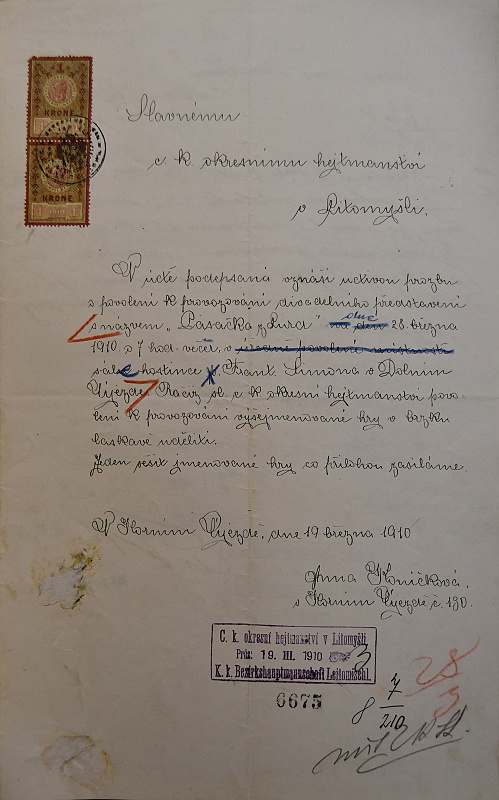 1
KRONE
KRONE
1 1
Slavnému
c k okresnímu hejtmanství
v Litomyšli.
V úctě podepsaná vznáší uctivou prozbu
o povolení k provozování divadelního představení
s názvem „Pasačka z Lurd" dne 28. března
1910 o 7 hod. večer, v
sále hostince Frant. Šimona v Dolním
Újezdě. Račiž sl. c k okresní hejtmanství povo-
lení k provozování výšejmenované hry v brzku
laskavě uděliti.
Jeden sešit jmenované hry co přílohou zasíláme.
V Horním Újezdě, dne 19 března 1910
Anna Koníčková
v Horním Újezdě č. 130.
C. k. okresní hejtmanství v Litomyšli.
Prés: 19. III. 1910
3
K. k. Bezirkshauptmannschaft Leitomischl.
6675
28
3
8 7
210